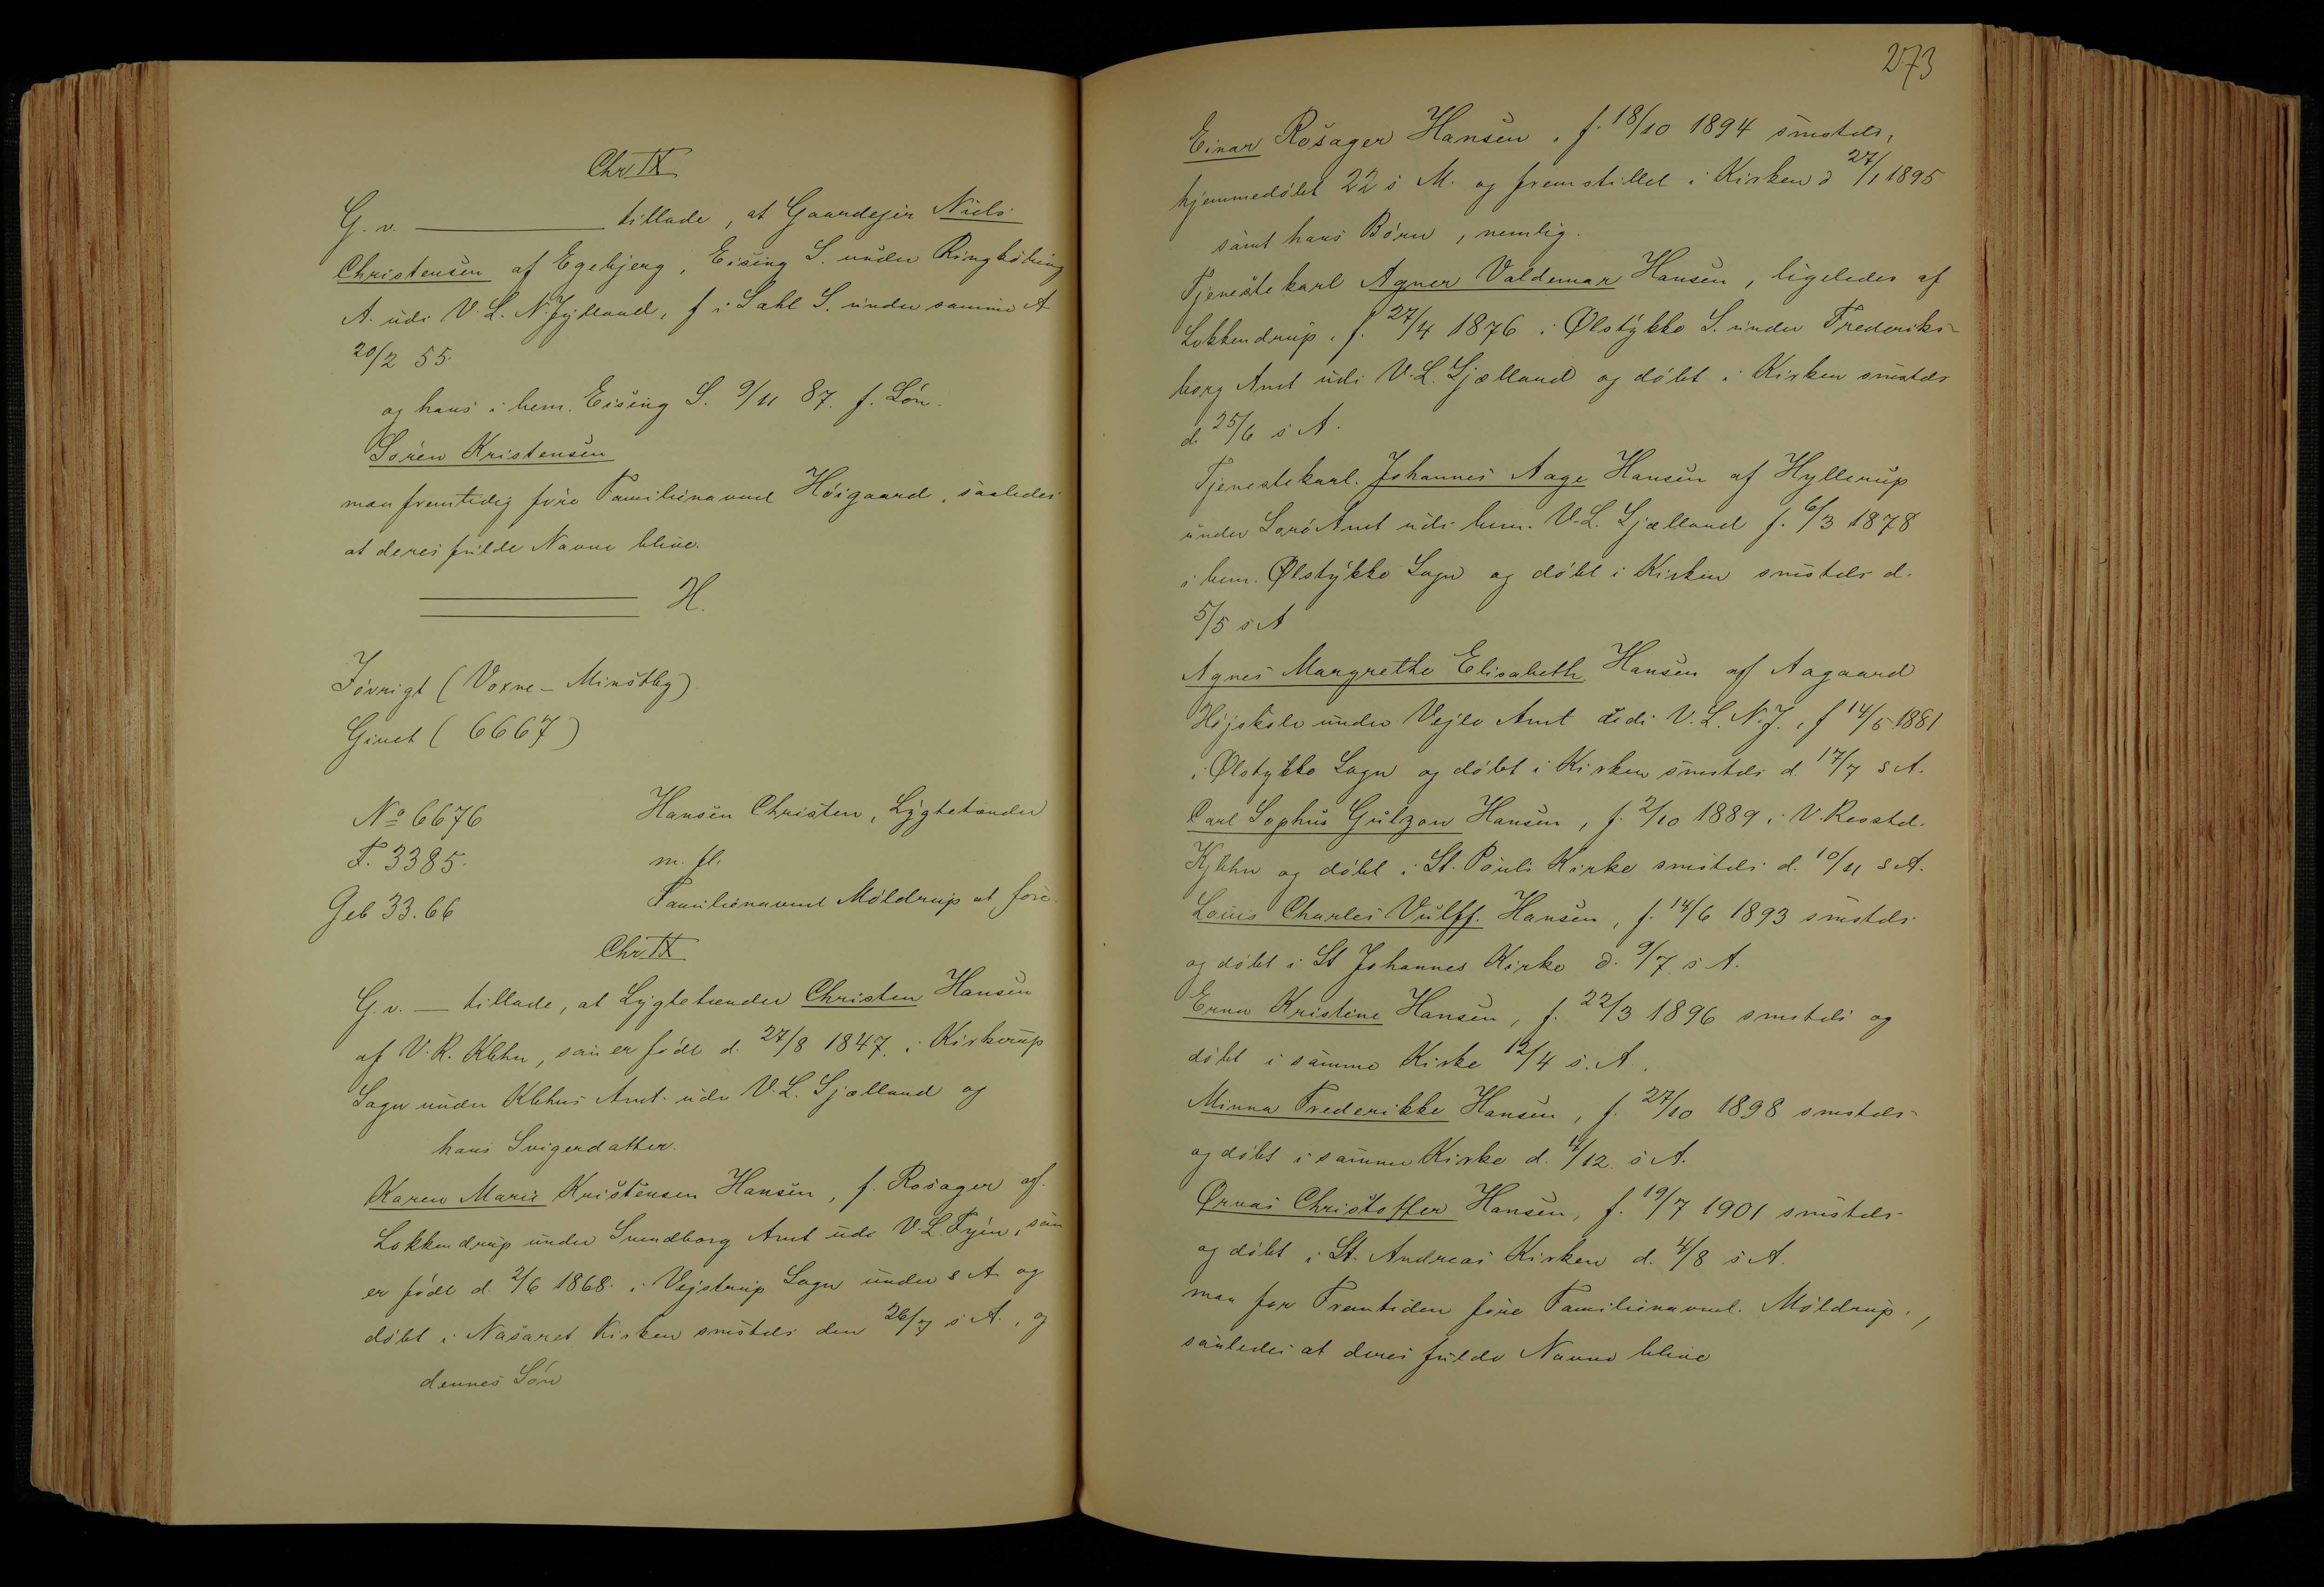 Chr IX
G. v. ——— tillade, at Gaardejer Niels
Christensen af Egebjerg, Eising S. under Ringkøbing
A. udi V. L. N. Jylland, f i Sahl S. under samme A
20/2 55.
og hans i bem. Eising S. 9/11 87. f. Søn.
Søren Kristensen
maa fremtidig føre Familienavnet Høigaard, saaledes
at deres fulde Navne blive.
H.
Iøvrigt (Voxne - Minsthy)
Givet (6667)
No 6676 Hansen Christen, Lygtetænder
F. 3385. m. fl.
Geb 33.66 Familienavnet Møldrup at føre.
Chr IX
G. v. — tillade, at Lygtetænder Christen Hansen
af V. R. Kbhn, som er født d. 27/8 1847. i Kirkerup
Sogn under Kbhns Amt udi V. L. Sjælland og
hans Svigerdatter.
Karen Marie Kristensen Hansen, f. Rosager af
Lokkendrup under Svendborg Amt udi V. L. Fyen, som
er født d. 2/6 1868. i Vejstrup Sogn under s A og
døbt i Nasaret Kirken smstds den 26/7 s A., og
dennes Søn
273
Einar Rosager Hansen, f. 18/10 1894 smstds,
hjemmedøbt 22 s M. og fremstillet i Kirken d 27/1 1895
samt hans Børn, nemlig.
Tjenestekarl Agner Valdemar Hansen, ligeledes af
Lokkendrup, f. 27/4 1876 i Ølstykke S. under Frederiks-
borg Amt udi V. L. Sjælland og døbt i Kirken smstds
d. 25/6 s A.
Tjenestekarl. Johannes Aage Hansen af Hyllerup
under Sorø Amt udi bem. V. L. Sjælland f. 6/3 1878
i bem. Ølstykke Sogn og døbt i Kirken smstds d.
5/5 s A
Agnes Margrethe Elisabeth Hansen af Aagaard
Højskole under Vejle Amt udi V. L. N. J., f 14/5 1881
i Ølstykke Sogn og døbt i Kirken smstds d. 17/7 s A.
Carl Sophus Gülzow Hansen, f. 2/10 1889 i V. Resstd.
Kjbhn og døbt i St. Pouls Kirke smstds d. 10/11 s A.
Louis Charles Vulff. Hansen, f. 14/6 1893 smstds
og døbt i St Johannes Kirke d. 9/7 s A.
Erna Kristine Hansen, f. 22/3 1896 smstds og
døbt i samme Kirke 12/4 s. A.
Minna Frederikke Hansen, f. 27/10 1898 smstds
og døbt i samme Kirke d. 4/12 s A.
Ørnas Christoffer Hansen, f. 19/7 1901 smstds
og døbt i St. Andreas Kirken d. 4/8 s A.
maa for Fremtiden føre Familienavnet. Møldrup,
saaledes at deres fulde Navne blive